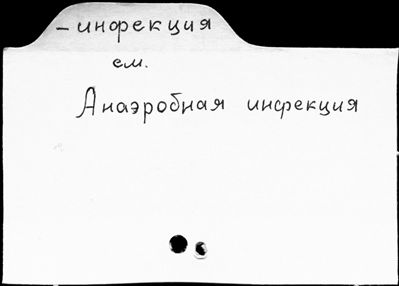 – инфекция
см.
Анаэробная инфекция